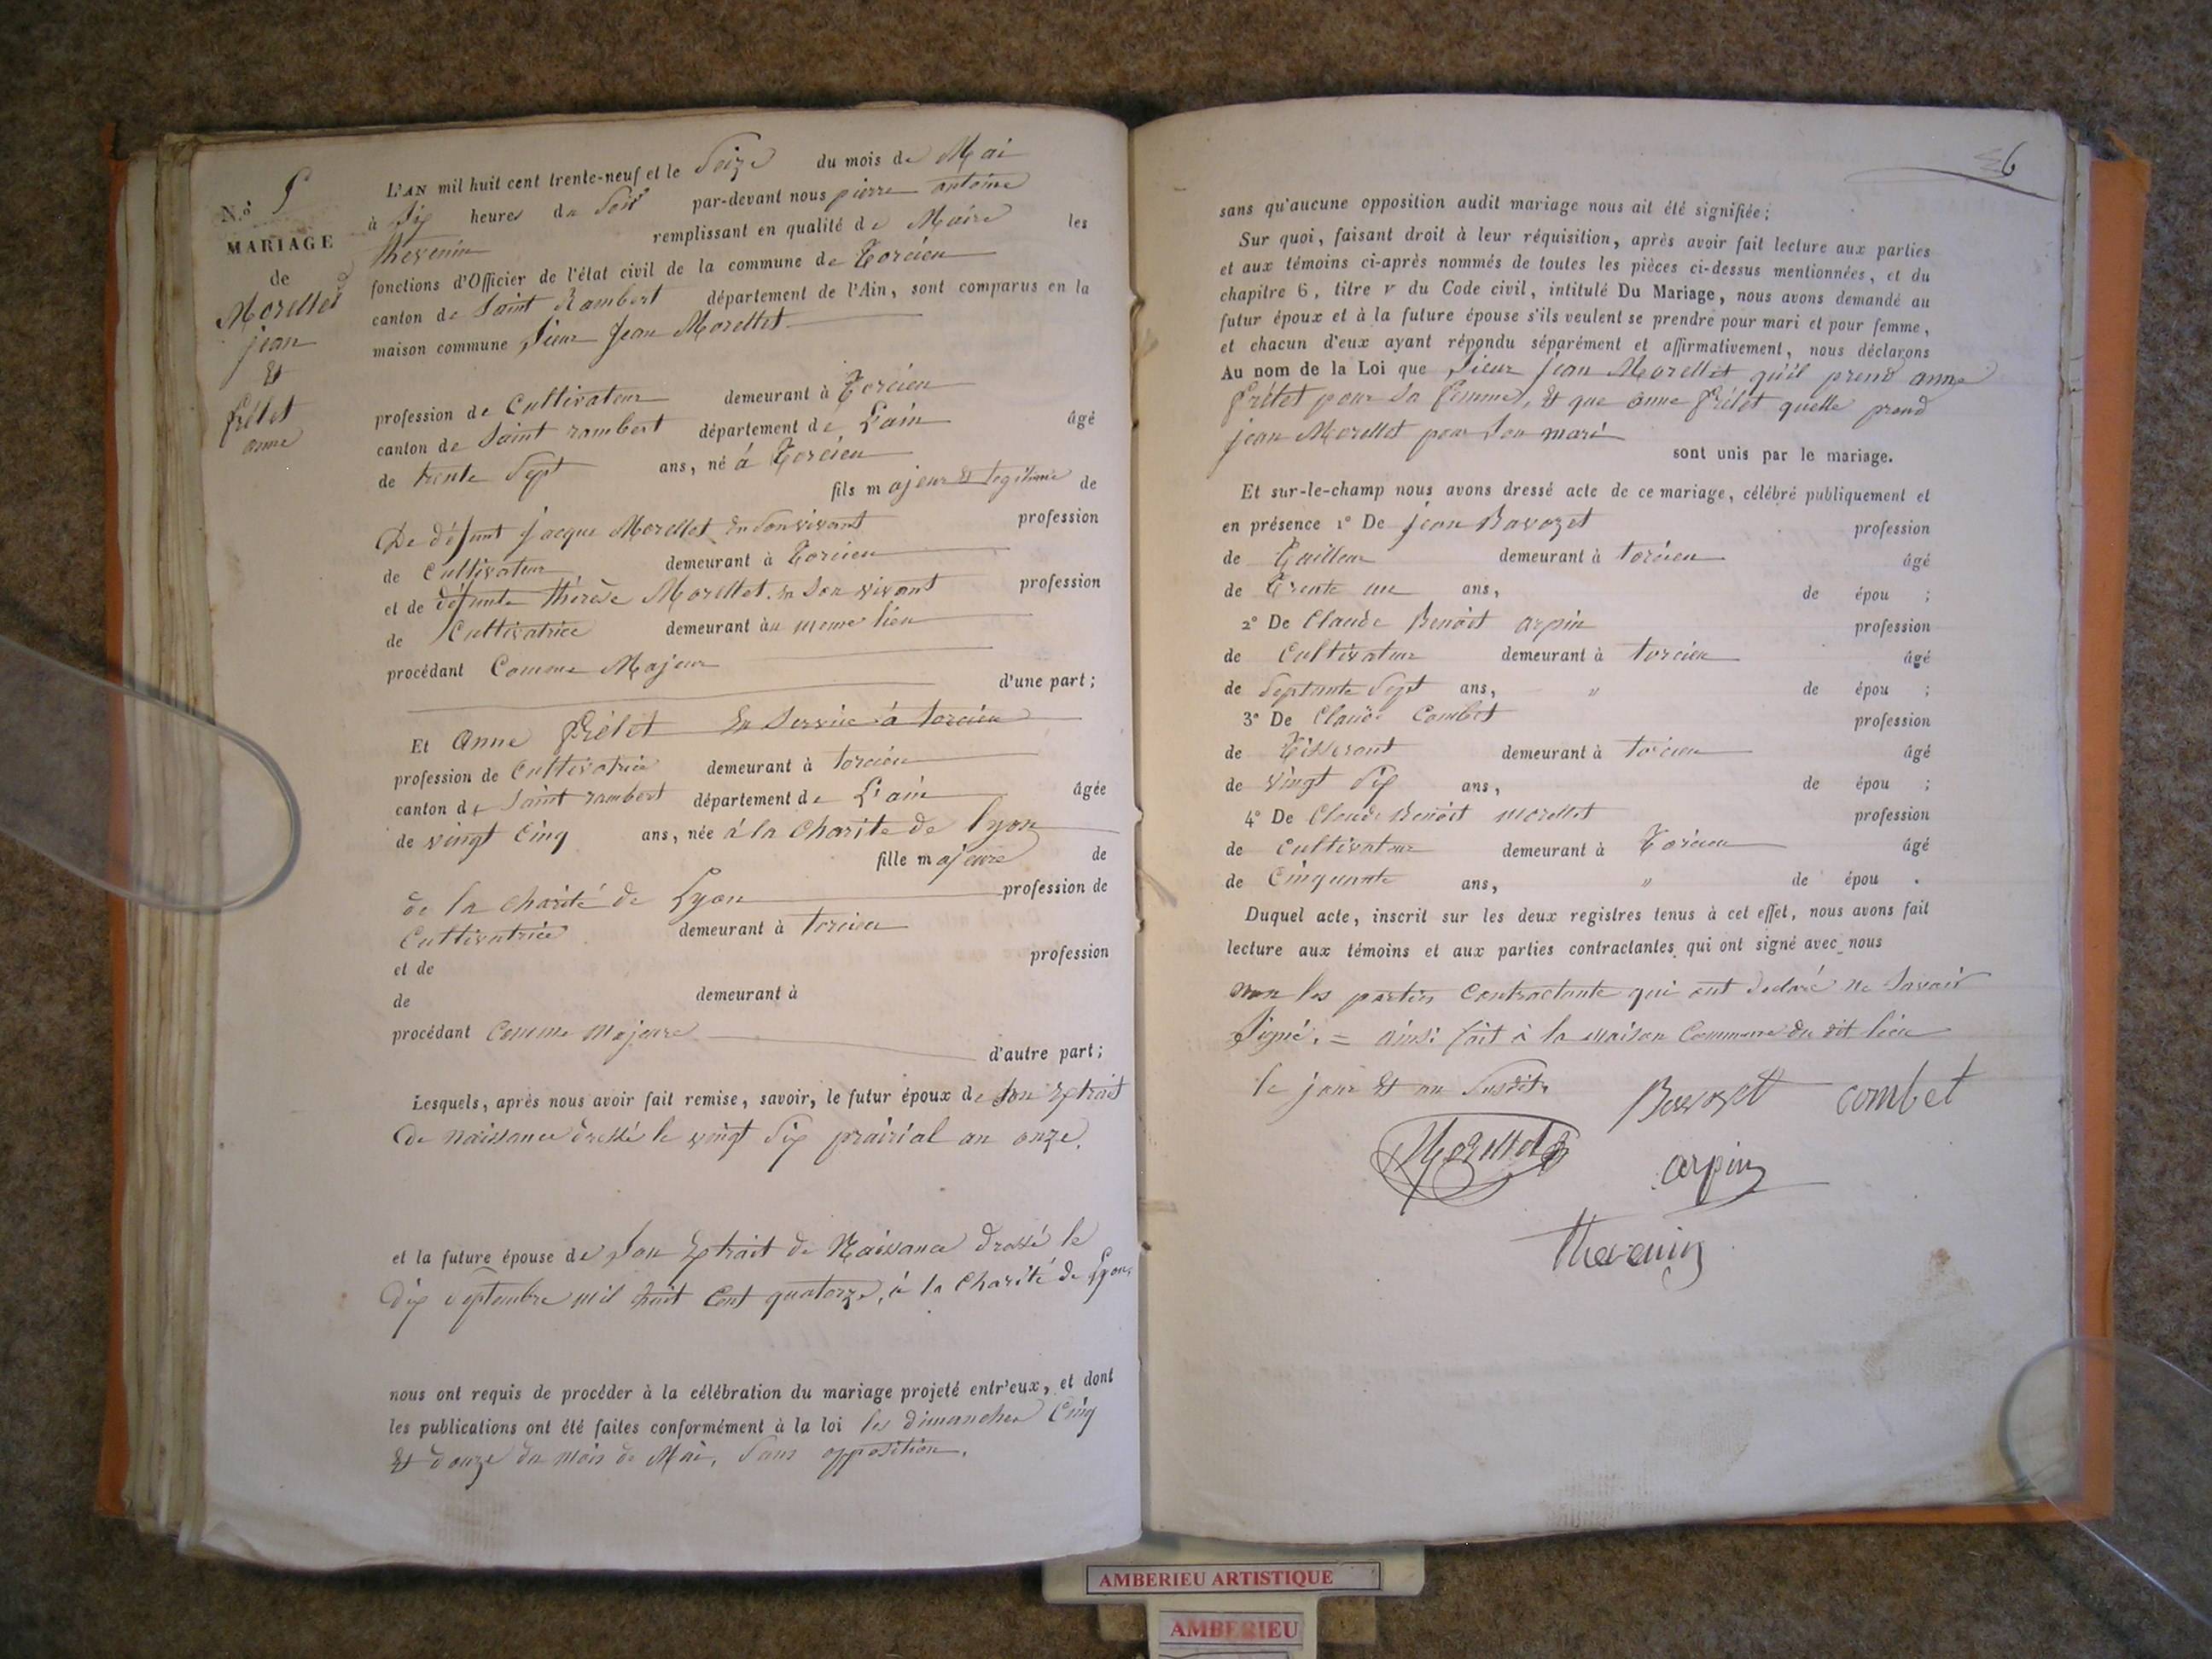 N.º 5
MARIAGE
de
Morellet
jean
Et
frélet
anne
L'AN mil huit cent trente-neuf et le Seize du mois de Mai
à Six heures du Soir par-devant nous pierre antoine
thevenin remplissant en qualité de Maire les
fonctions d'Officier de l'état civil de la commune de Torcieu
canton de Saint Rambert département de l'Ain, sont comparus en la
maison commune Sieur Jean Morellet
profession de Cultivateur demeurant à Torcieu
canton de Saint rambert département de L'ain âgé
de trente Sept ans, né à Torcieu
fils majeur & legitime de
De défunt jacque Morellet En Son vivant profession
de Cultivateur demeurant à Torcieu
et de défunte thérèse Morellet En Son vivant profession
de Cultivatrice demeurant au meme lieu
procédant Comme Majeur
d'une part;
Et Anne frélet En Service à torcieu
profession de Cultivatrice demeurant à torcieu
canton de Saint rambert département de L'ain âgée
de vingt Cinq ans, née à la Charite de lyon
fille majeure de
de la charité de Lyon profession de
Cultivatrice demeurant à torcieu
et de profession
de demeurant à
procédant Comme Majeure
d'autre part;
Lesquels, après nous avoir fait remise, savoir, le futur époux de Son Extrait
de Naissance dressé le vingt Six prairial an onze.
et la future épouse de Son Extrait de Naissance dressé le
dix septembre mil huit Cent quatorze, à la Charité de Lyon,
nous ont requis de procéder à la célébration du mariage projeté entr'eux, et dont
les publications ont été faites conformément à la loi les dimanches Cinq
Et douze du mois de Mai, Sans opposition.
26
sans qu'aucune opposition audit mariage nous ait été signifiée;
Sur quoi, faisant droit à leur réquisition, après avoir fait lecture aux parties
et aux témoins ci-après nommés de toutes les pièces ci-dessus mentionnées, et du
chapitre 6, titre v du Code civil, intitulé Du Mariage, nous avons demandé au
futur époux et à la future épouse s'ils veulent se prendre pour mari et pour femme,
et chacun d'eux ayant répondu séparément et affirmativement, nous déclarons
Au nom de la Loi que Sieur Jean Morellet qu'il prend anne
frélet pour Sa femme, Et que anne frélet quelle prend
jean Morellet pour Son mari
sont unis par le mariage.
Et sur-le-champ nous avons dressé acte de ce mariage, célébré publiquement et
en présence 1º De jean Bavozet profession
de Tailleur demeurant à torcieu âgé
de Trente un ans, de épou ;
2º De Claude Benoit arpin profession
de Cultivateur demeurant à torcieu âgé
de Septante Sept ans, " de épou ;
3º De Claude Combet profession
de Tisserant demeurant à torcieu âgé
de vingt Six ans, de épou ;
4º De Claude Benoit morellet profession
de Cultivateur demeurant à Torcieu âgé
de Cinquante ans, " de épou .
Duquel acte, inscrit sur les deux registres tenus à cet effet, nous avons fait
lecture aux témoins et aux parties contractantes qui ont signé avec nous
non les parties Contractante qui ont declaré ne Savoir
Signé. = ainsi fait à la maison Commune du dit lieu
le jour Et an Susdit.
Bavozet combet
Morellet
arpin
thevenin
AMBERIEU ARTISTIQUE
AMBERIEU